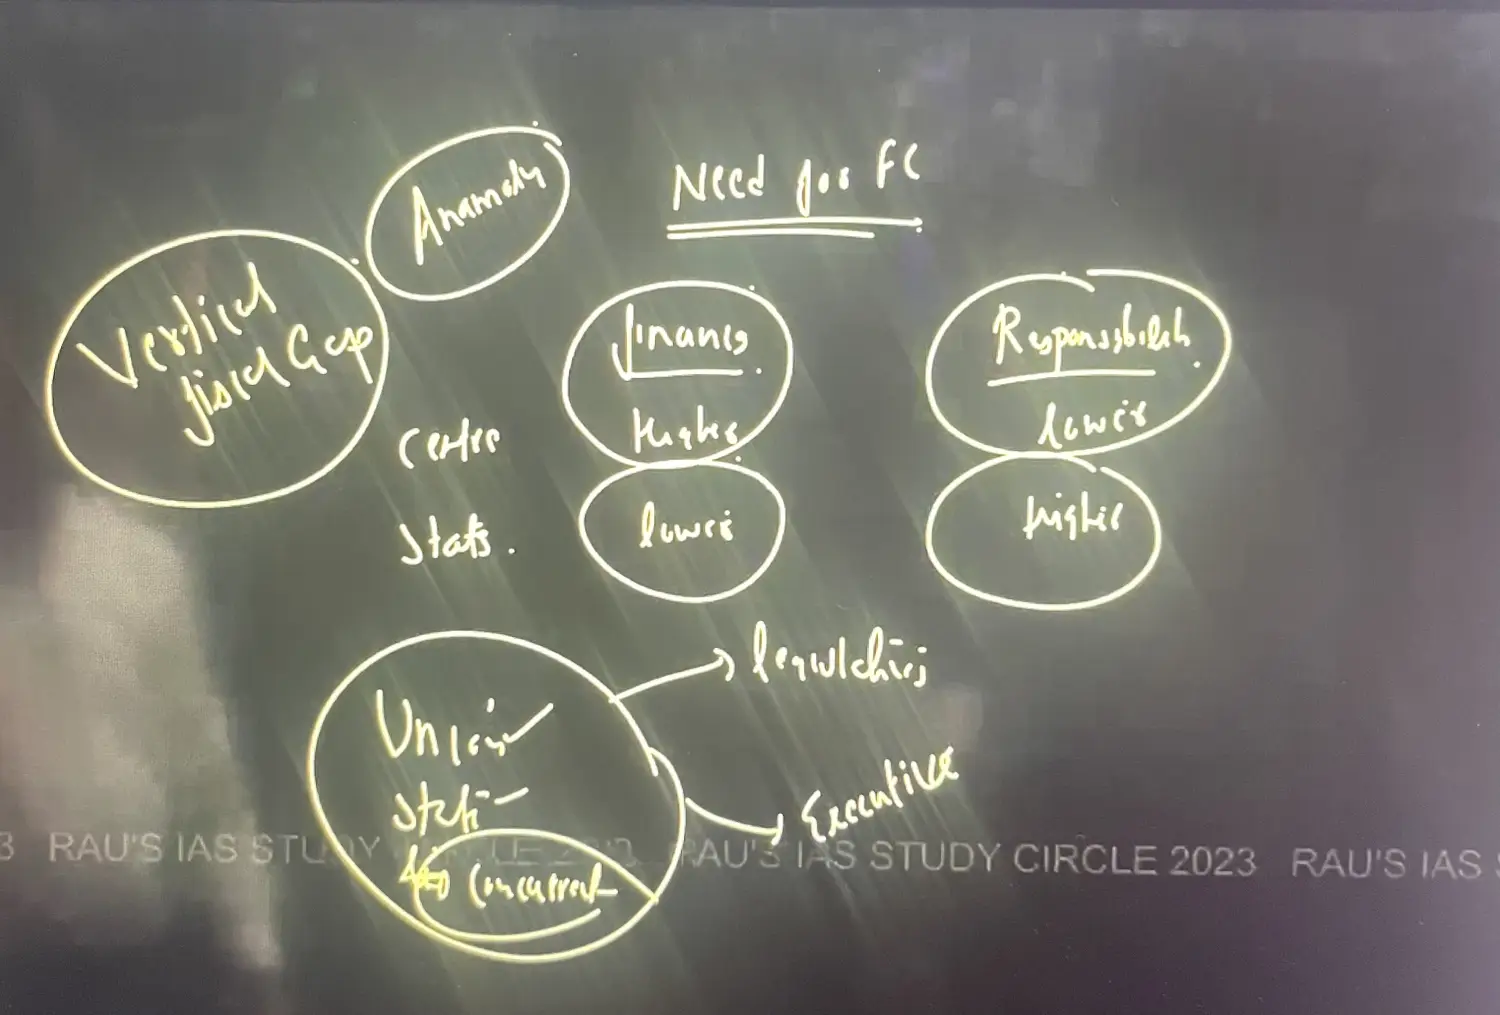 Anamoly
Need for FC
Vertical
fiscal Gap
finances
Responsibilities
Centre
Higher
lower
States.
lower
higher
Union
State
Concurrent
legislative
Executive
3 RAU'S IAS STUDY CIRCLE 2023 RAU'S IAS STUDY CIRCLE 2023 RAU'S IAS S